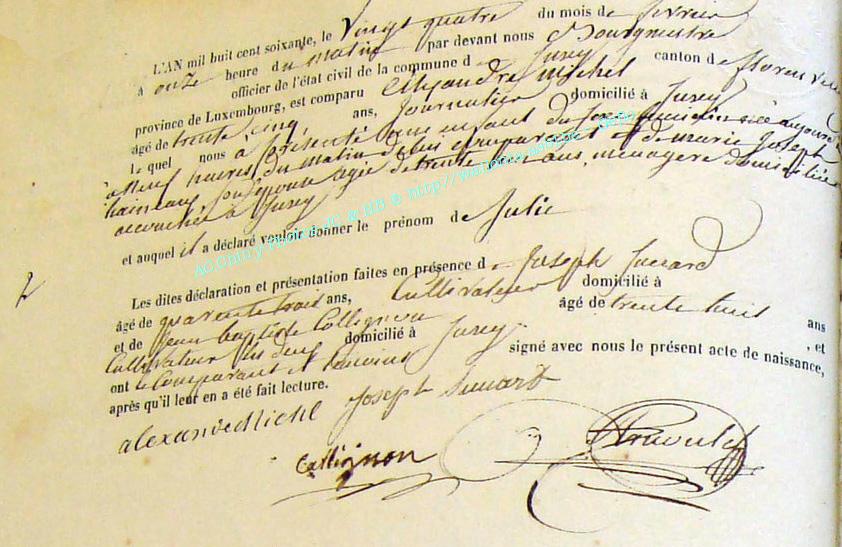 L'AN mil huit cent soixante, le Vingt quatre du mois de fevrier
à onze heure du matin par devant nous Bourgmestre
officier de l'état civil de la commune d Jusey canton de
province de Luxembourg, est comparu Alexandre Michel
âgé de trente cinq ans, journalier domicilié à Jusey
lequel nous a présenté un enfant du sexe féminin née aujourd
à heures du matin de lui comparant et de marie Joseph
son épouse agée de trente ans, ménagere domiciliée
accouchée à Jusey
et auquel il a déclaré vouloir donner le prénom de Julie
Les dites déclaration et présentation faites en présence d Joseph
âgé de quarente trois ans, Cultivateur domicilié à
et de Jean baptiste Collignon âgé de trente huit ans
Cultivateur les deux domicilié à Jusey , et
ont le Comparant et temoins signé avec nous le présent acte de naissance,
après qu'il leur en a été fait lecture.
alexandre Michel Joseph
Collignon
2